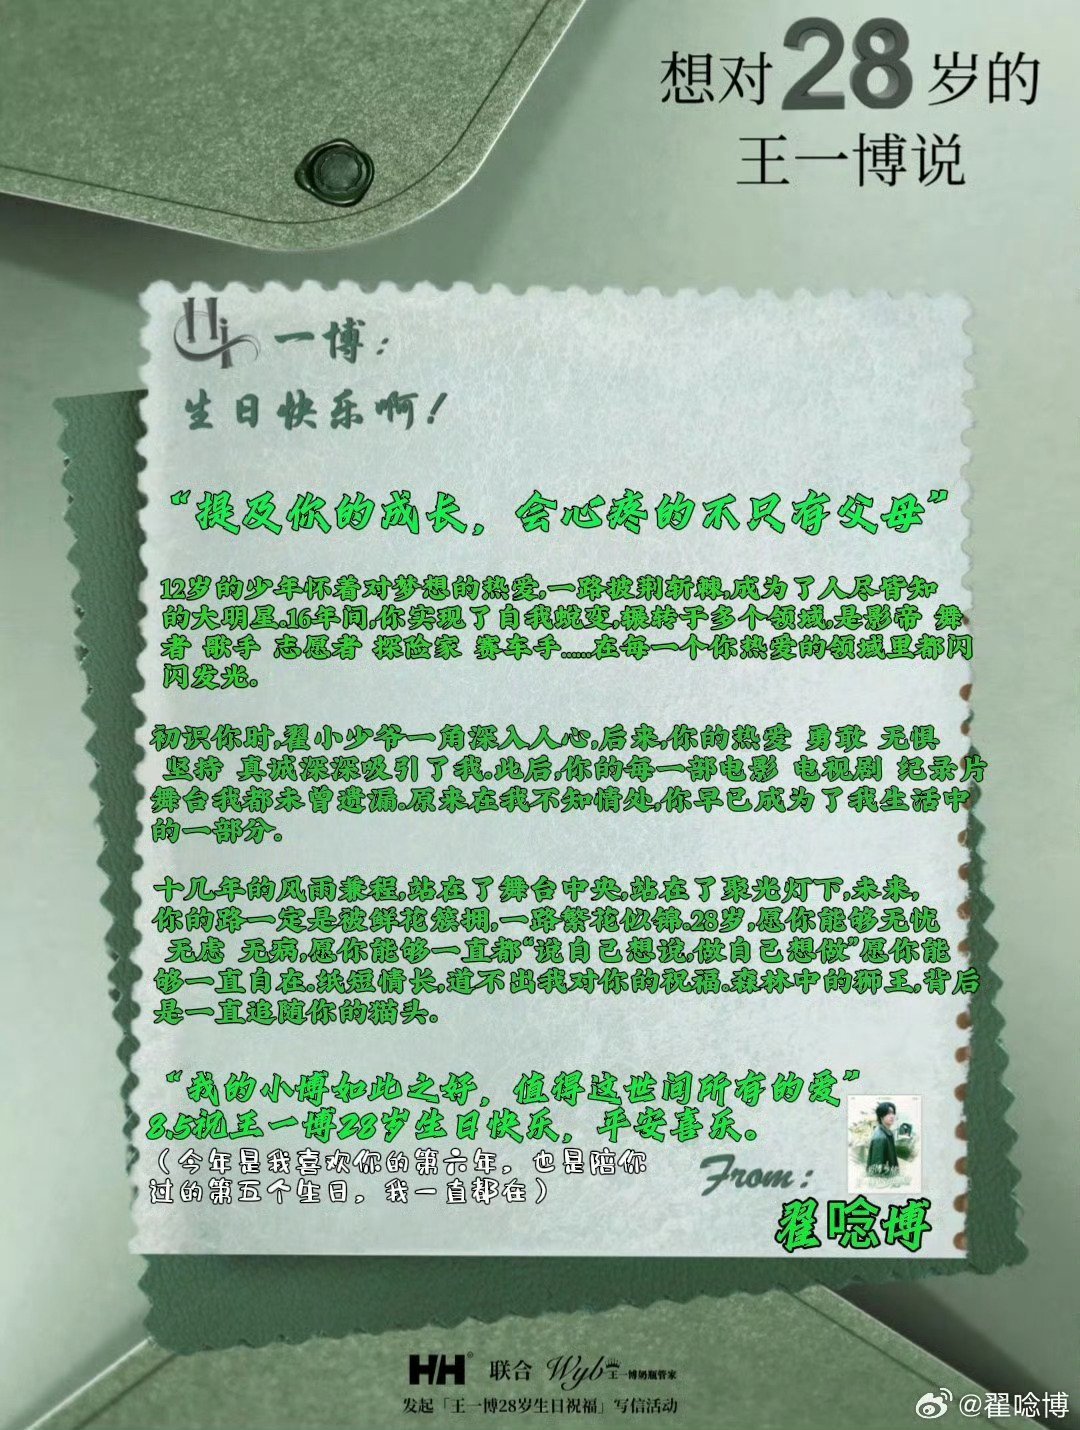 想对28岁的
王一博说
Hi 一博：
生日快乐啊！
“提及你的成长，会心疼的不只有父母”
12岁的少年怀着对梦想的热爱,一路披荆斩棘,成为了人尽皆知
的大明星.16年间,你实现了自我蜕变,辗转于多个领域,是影帝 舞
者 歌手 志愿者 探险家 赛车手……在每一个你热爱的领域里都闪
闪发光。
初识你时,翟小少爷一角深入人心,后来,你的热爱 勇敢 无惧
坚持 真诚深深吸引了我.此后,你的每一部电影 电视剧 纪录片
舞台我都未曾遗漏.原来在我不知情处,你早已成为了我生活中
的一部分。
十几年的风雨兼程,站在了舞台中央,站在了聚光灯下,未来,
你的路一定是被鲜花簇拥,一路繁花似锦.28岁,愿你能够无忧
无虑 无病,愿你能够一直都“说自己想说,做自己想做”愿你能
够一直自在.纸短情长,道不出我对你的祝福.森林中的狮王,背后
是一直追随你的猫头。
“我的小博如此之好，值得这世间所有的爱”
8.5祝王一博28岁生日快乐，平安喜乐。
（今年是我喜欢你的第六年，也是陪你
过的第五个生日，我一直都在）
From：
翟唸博
HH® 联合 Wyb王一博奶瓶管家
发起「王一博28岁生日祝福」写信活动
@翟唸博